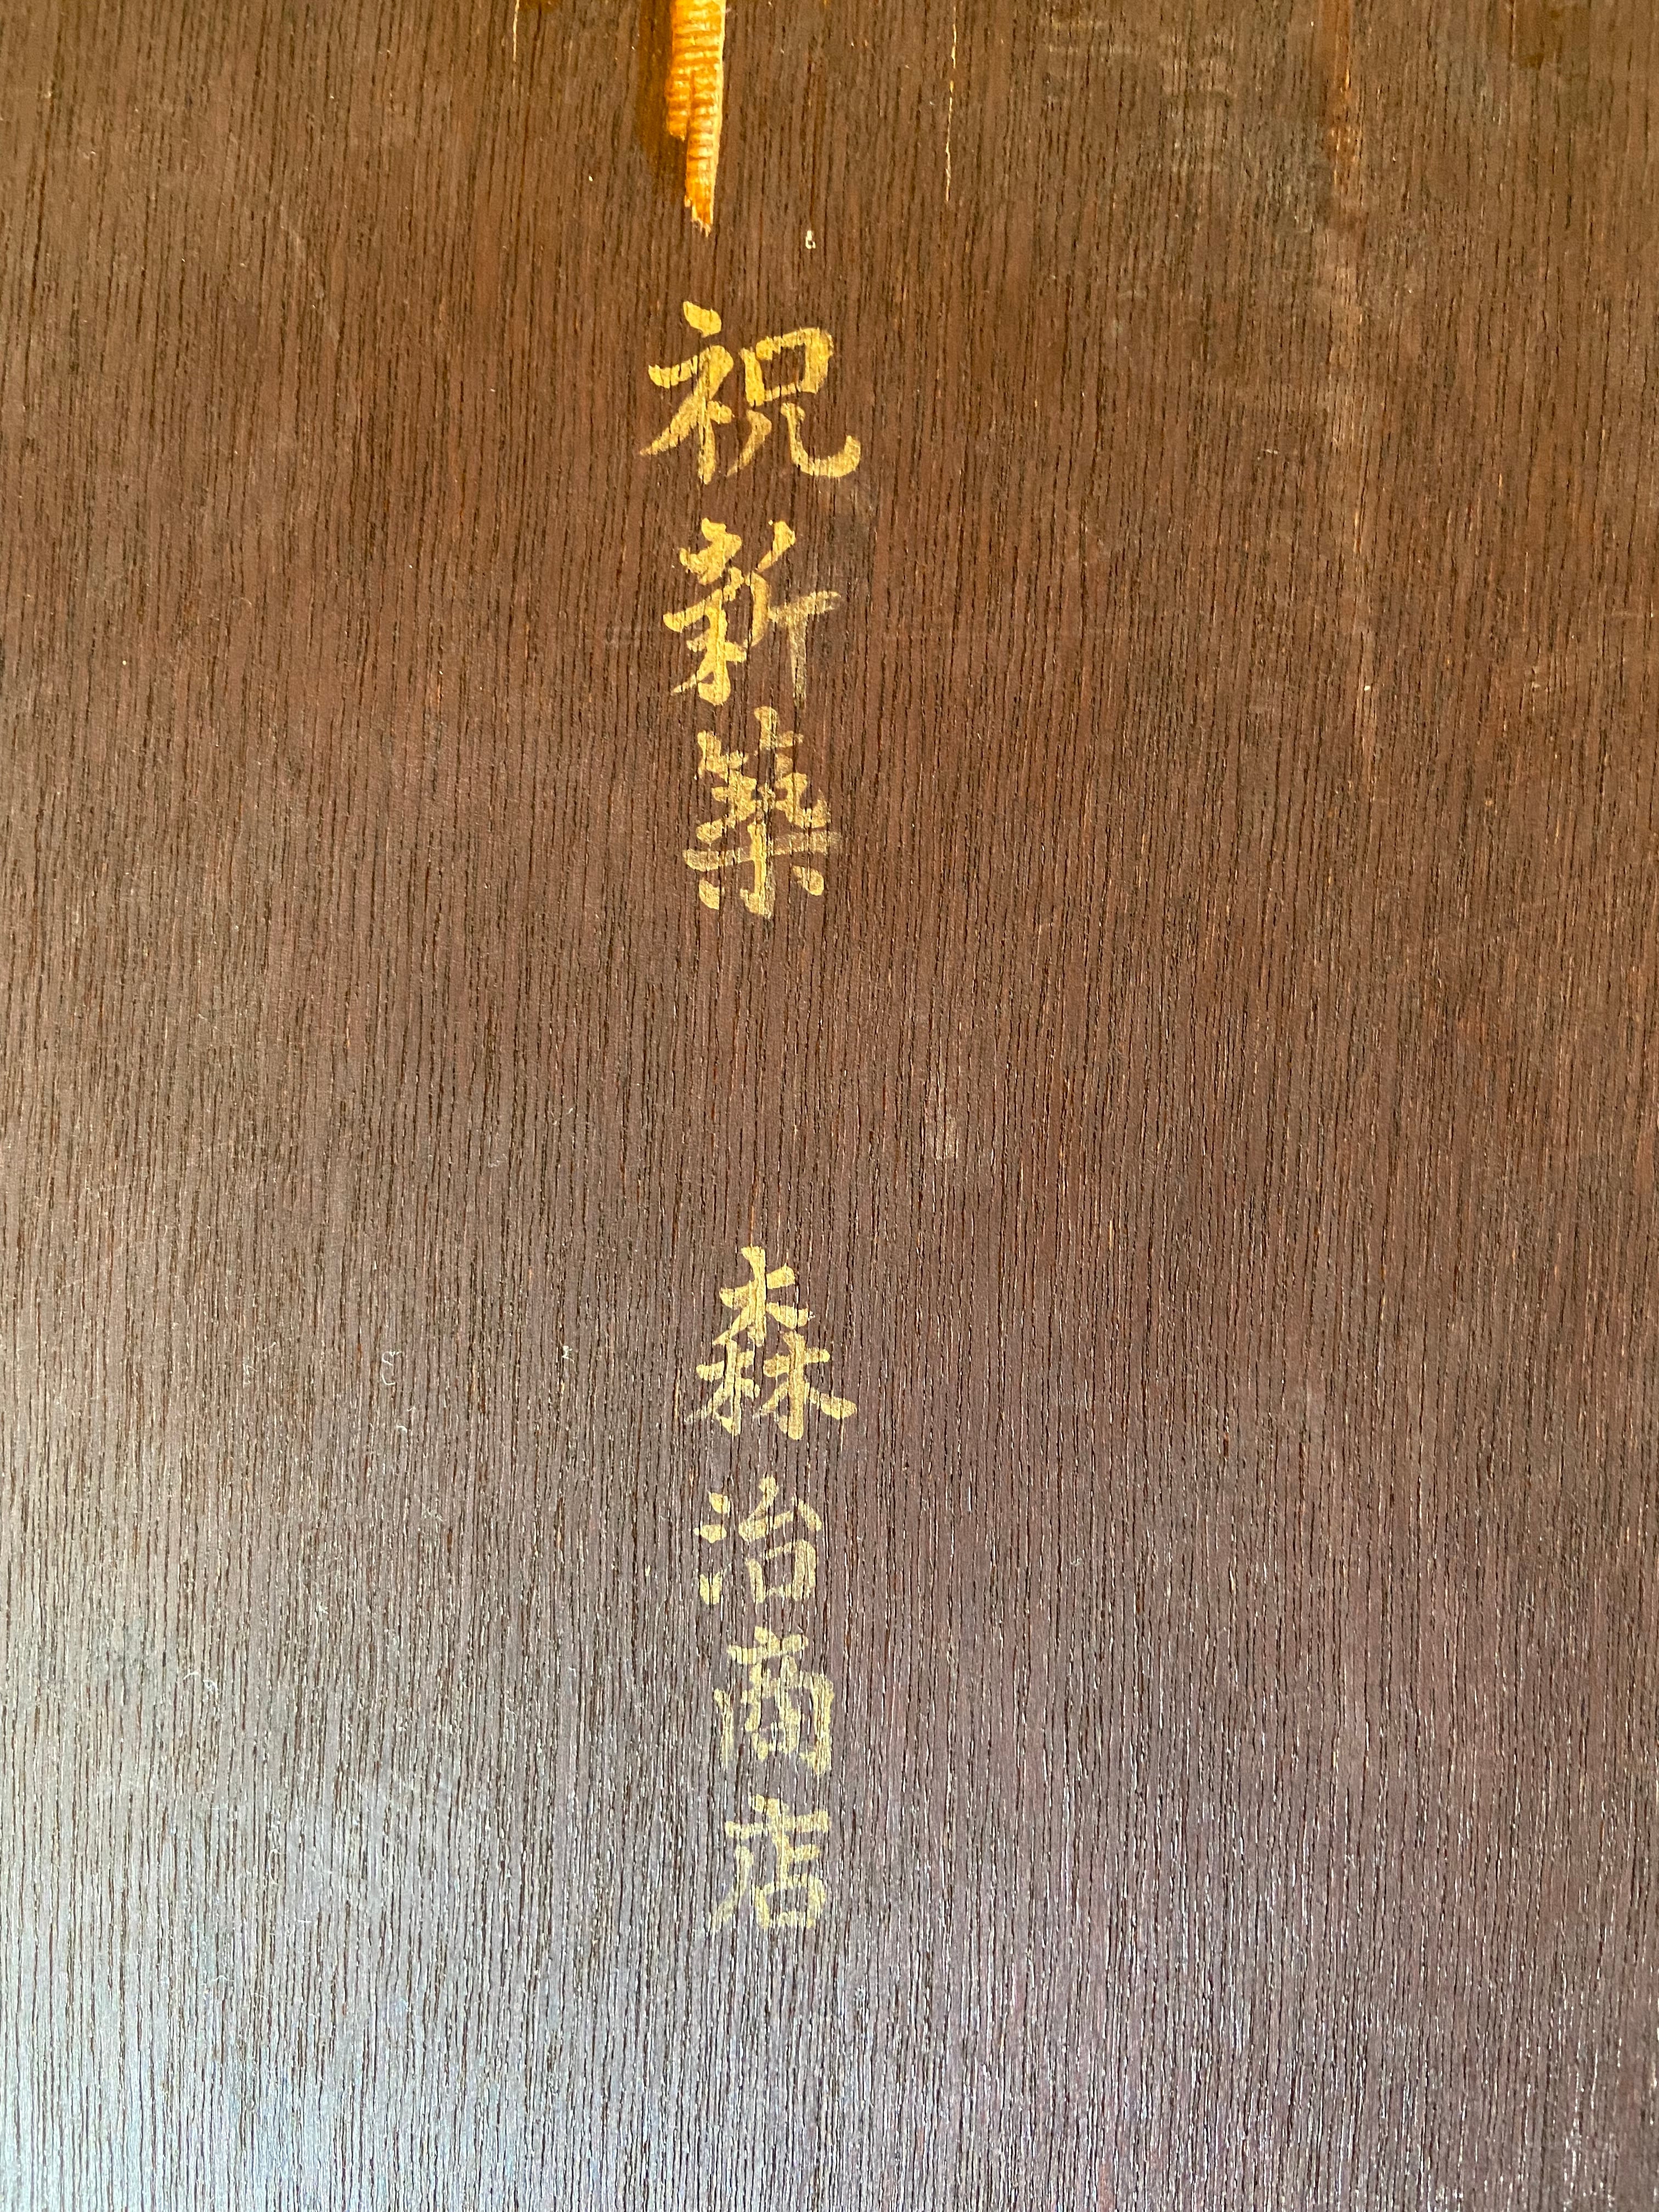 祝新築 森治商店